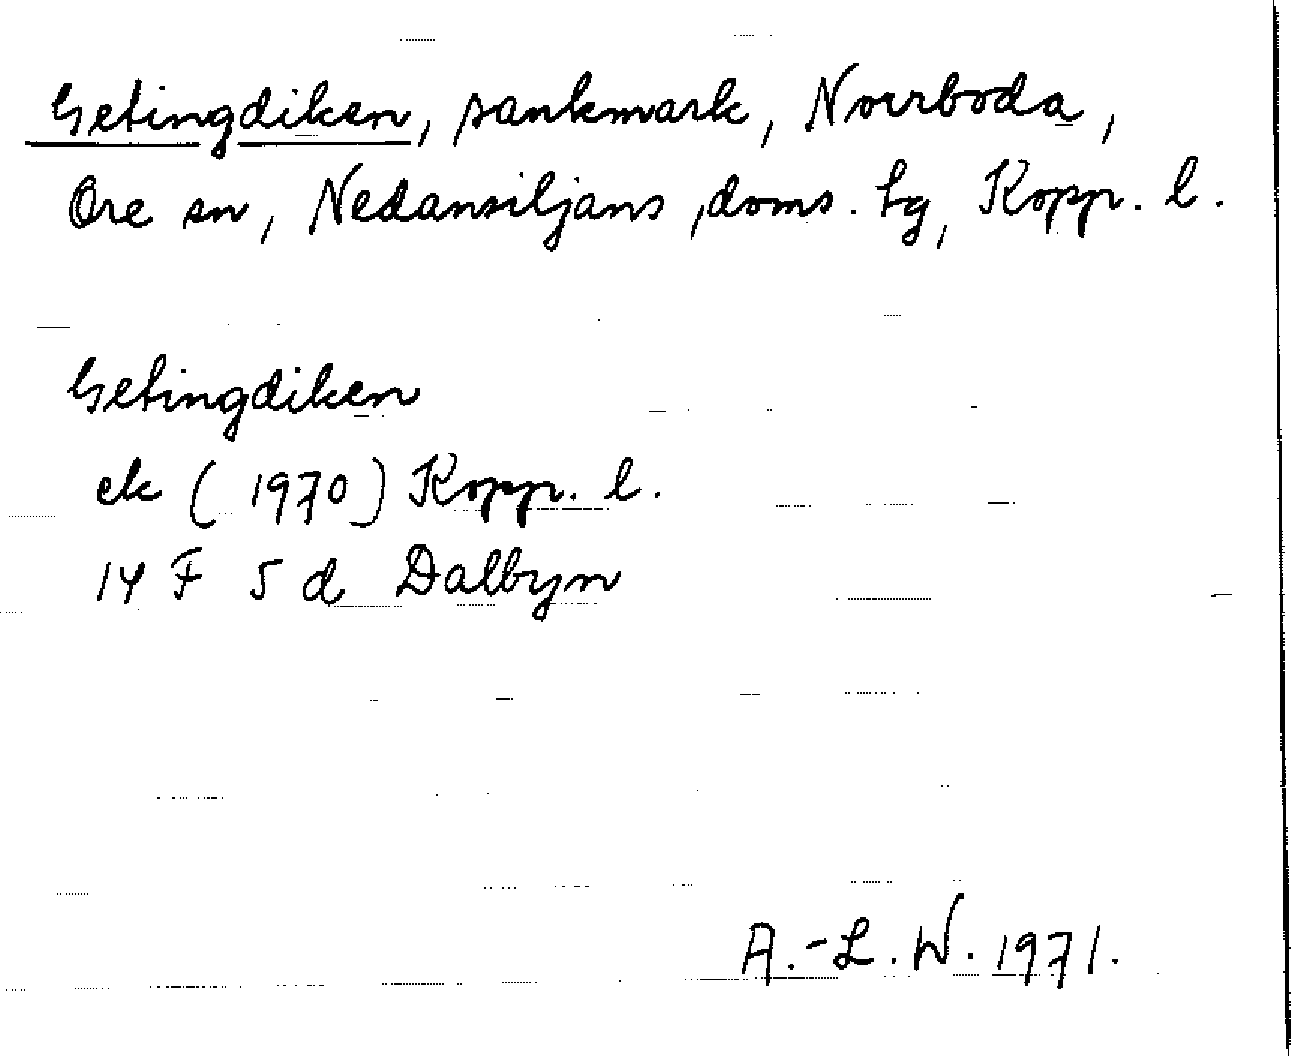 Getingdiken, sankmark, Norrboda,
Ore sn, Nedansiljans ,doms. tg, Kopp. l.
Getingdiken
ek (1970) Kopp. l.
14 F 5 d Dalbyn
A.-L. W. 1971.